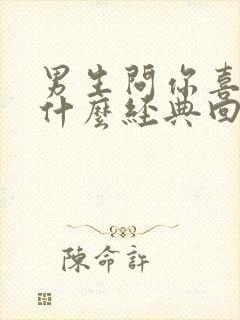 男生問你喜
什麼經典回
陳命許